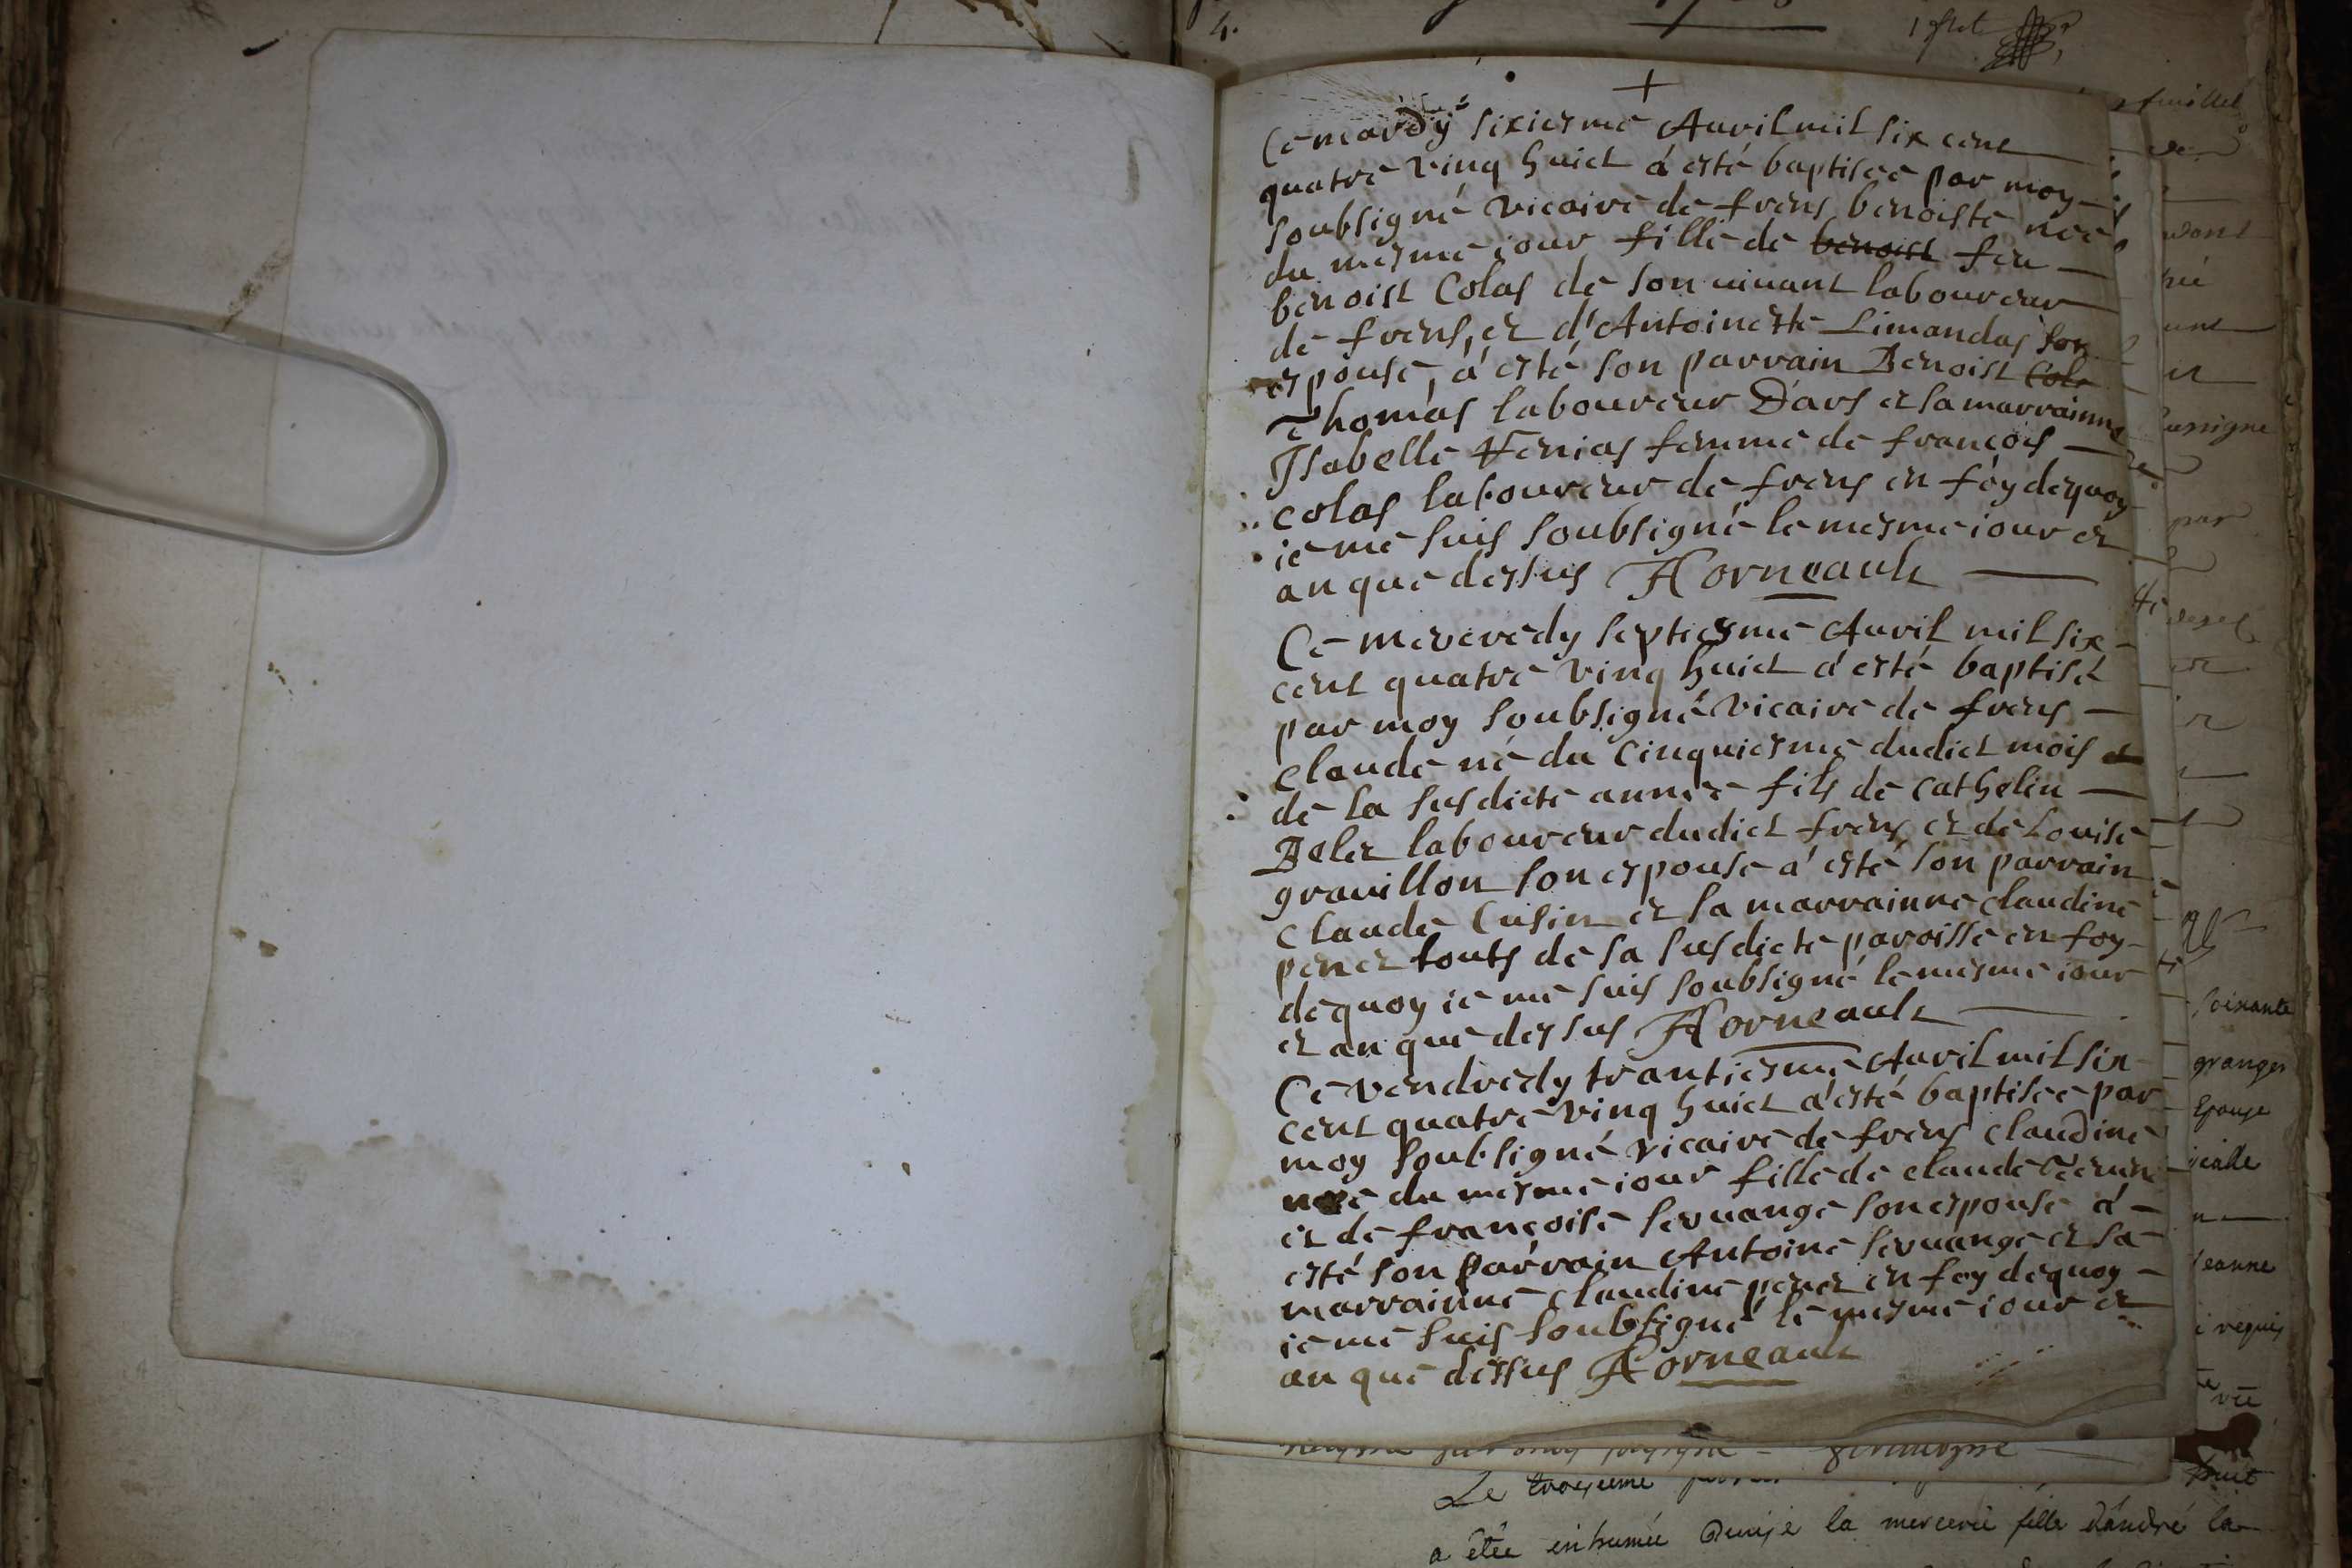 4.
Ce mardy sixiesme Auril mil six cent
quatre vinq huict á esté baptisée par moy
soubsigné vicaire de frens benoiste née
du mesme iour fille de benoist feu
benoist Colas de son uiuant laboureur
de frens, et d'Antoineste Limandas son
espouse, á esté son parrain Benoist Cola
Thomas laboureur D'ars et sa marrainne
Jsabelle Venias femme de françois
colas laboureur de frens en foy dequoy
ie me suis soubsigné le mesme iour et
an que dessus Horneault
Ce mercredy septiesme Auril mil six
cent quatre vinq huict á esté baptisé
par moy soubsigné vicaire de frens
claude né du cinquiesme dudict mois et
de la susdicte année fils de cathelin
Belet laboureur dudict frens et de Louise
grauillon son espouse á esté son parrain
claude Cusin et sa marrainne claudine
penet touts de sa susdicte paroisse en foy
dequoy ie me suis soubsigné le mesme iour
et an que dessus Horneault
Ce vendredy trantiesme Auril mil six
cent quatre vinq huict á esté baptisée par
moy soubsigné vicaire de frens claudine
née du mesme iour fille de claude
et de françoise seruange son espouse á
esté son parrain Antoine seruange et sa
marrainne claudine penet en foy dequoy
ie me suis soubsigné le mesme iour et
an que dessus Horneault
Le troisieme
a étée inhumée la mercerie fille d'andré la
feuillet
de
soixante
granger
Epouse
jeanne
requis
huit